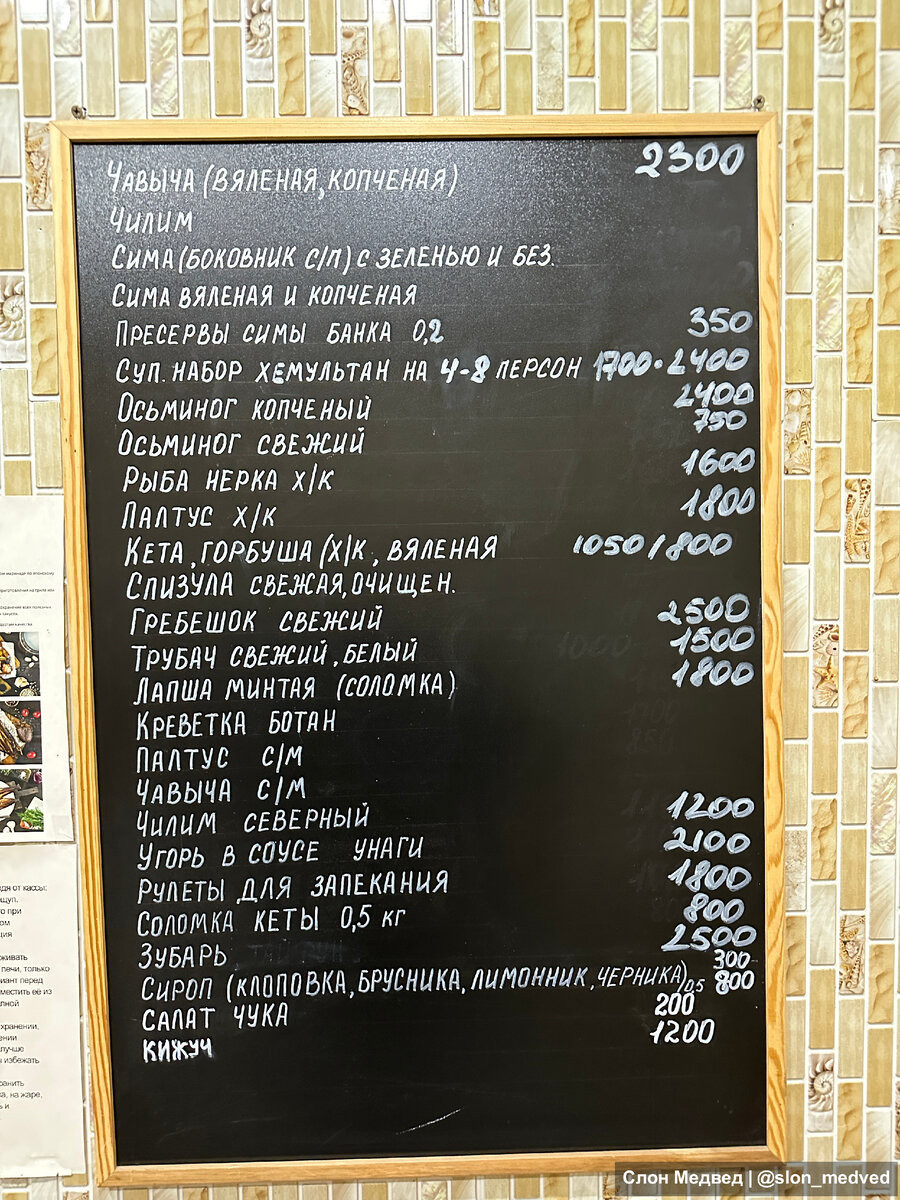 Чавыча (вяленая, копченая) 2300
Чилим
Сима (боковник с/п) с зеленью и без.
Сима вяленая и копченая
Пресервы симы банка 0,2 350
Суп. набор хемультан на 4-8 персон 1700-2400
Осьминог копченый 2400
Осьминог свежий 750
Рыба нерка х/к 1600
Палтус х/к 1800
Кета, горбуша (х/к, вяленая 1050/800
Спизула свежая, очищен.
Гребешок свежий 2500
Трубач свежий, белый 1500
Лапша минтая (соломка) 1800
Креветка ботан
Палтус с/м
Чавыча с/м
Чилим северный 1200
Угорь в соусе унаги 2100
Рулеты для запекания 1800
Соломка кеты 0,5 кг 800
Зубарь 2500
300
Сироп (клоповка, брусника, лимонник, черника) 0,5 800
Салат чука 200
Кижуч 1200
дя от кассы:
печи, только
хранении.
лучше
избежать
а, на жаре,
Слон Медвед | @slon_medved